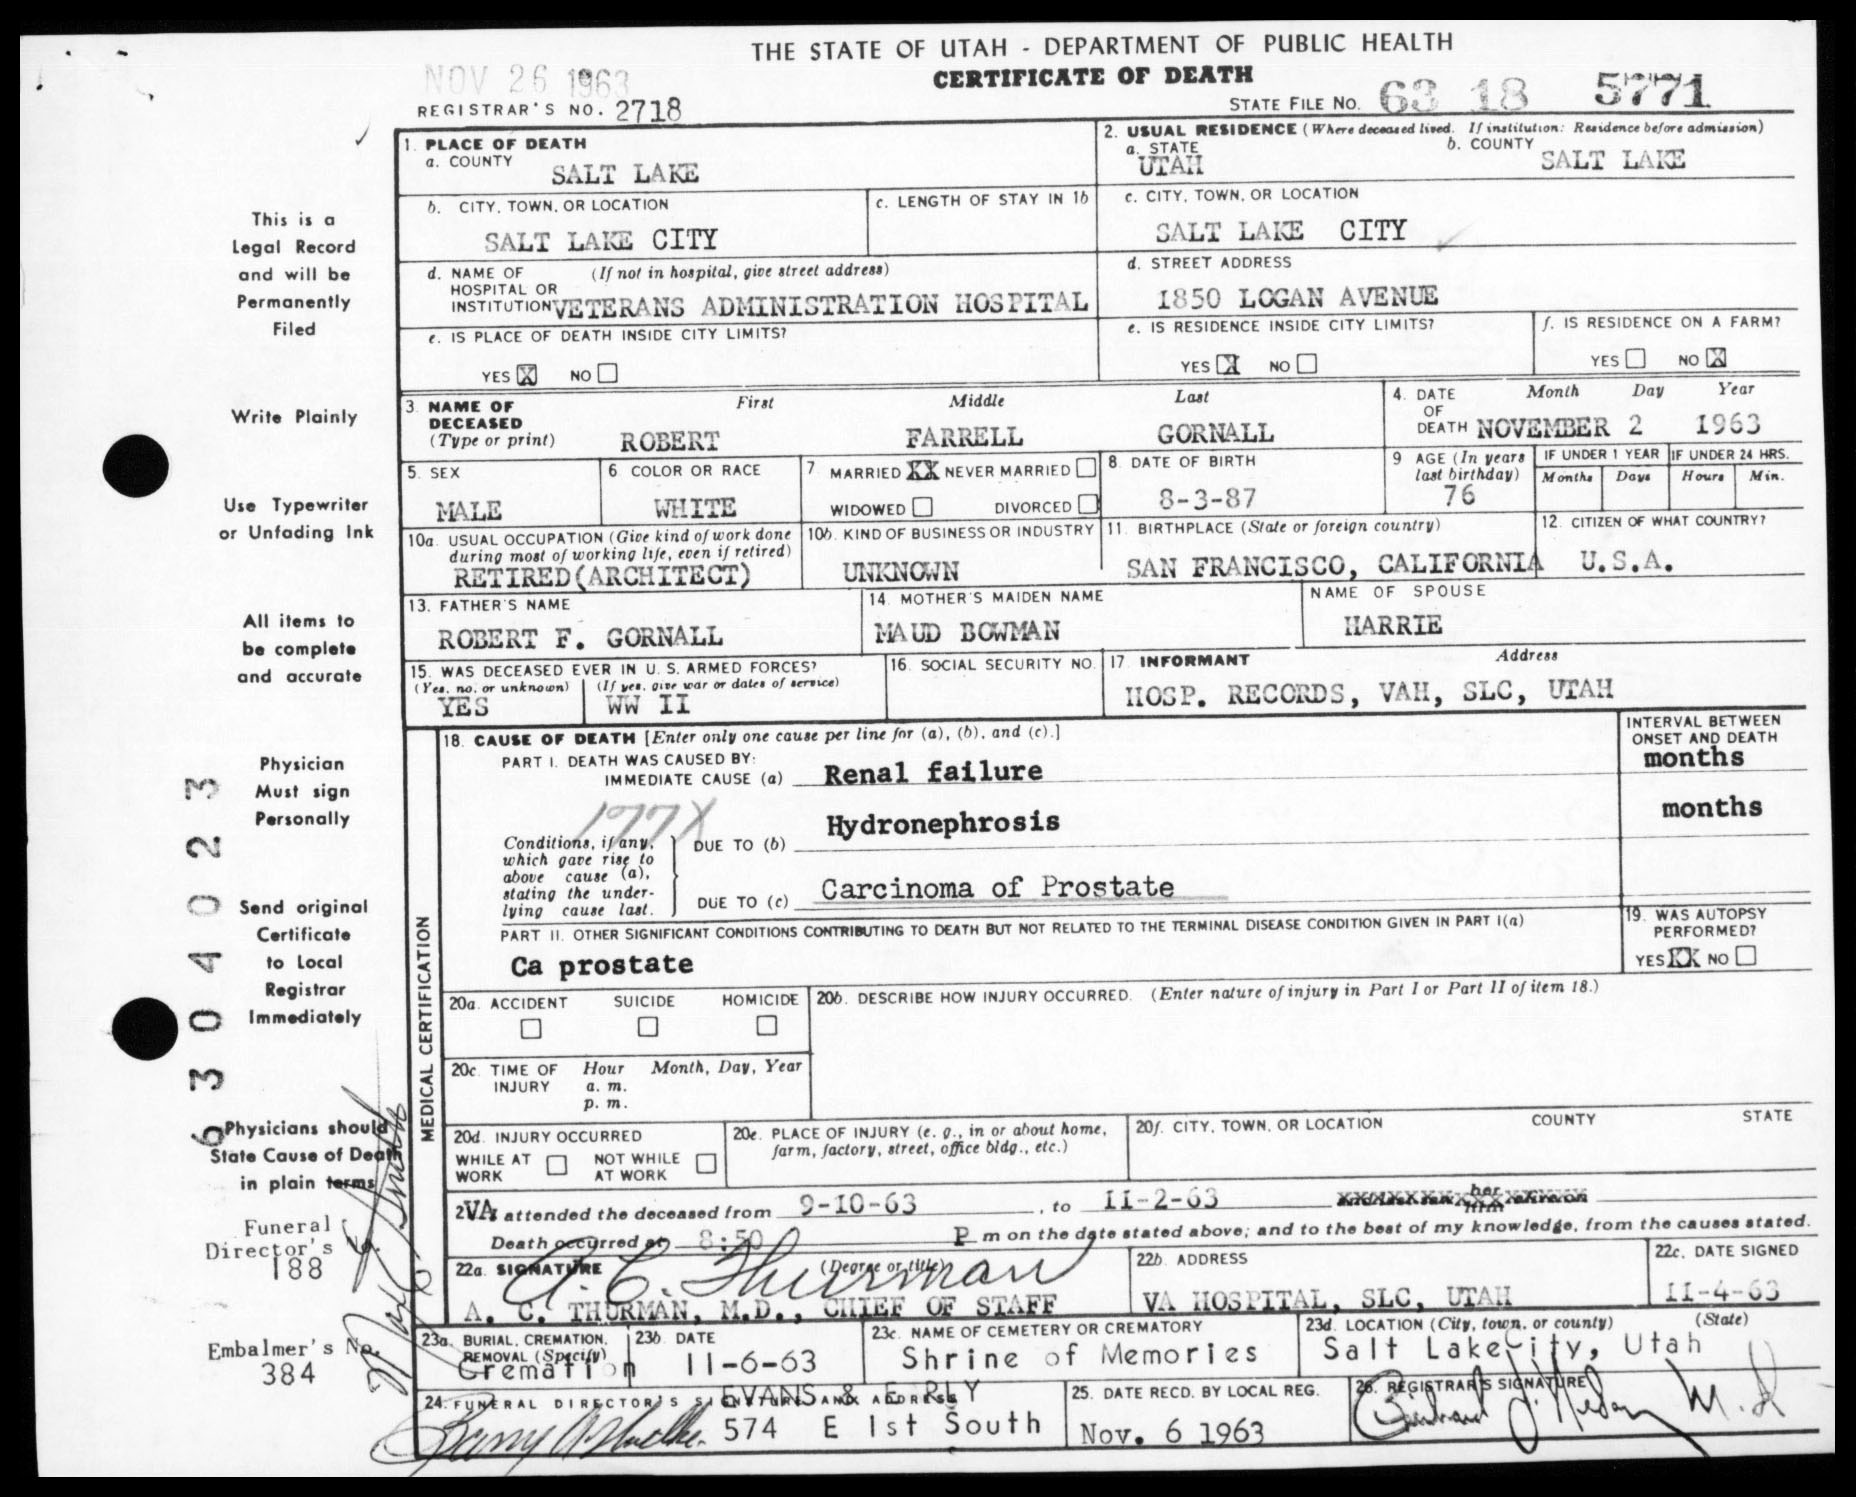 THE STATE OF UTAH - DEPARTMENT OF PUBLIC HEALTH
CERTIFICATE OF DEATH
NOV 26 1963
REGISTRAR'S NO. 2718
STATE FILE NO. 63 18 5771
1. PLACE OF DEATH
a. COUNTY SALT LAKE
2. USUAL RESIDENCE (Where deceased lived. If institution: Residence before admission)
a. STATE UTAH b. COUNTY SALT LAKE
b. CITY, TOWN, OR LOCATION SALT LAKE CITY
c. LENGTH OF STAY IN 1b
c. CITY, TOWN, OR LOCATION SALT LAKE CITY
d. NAME OF HOSPITAL OR INSTITUTION (If not in hospital, give street address) VETERANS ADMINISTRATION HOSPITAL
d. STREET ADDRESS 1850 LOGAN AVENUE
e. IS PLACE OF DEATH INSIDE CITY LIMITS?
YES X NO
e. IS RESIDENCE INSIDE CITY LIMITS?
YES X NO
f. IS RESIDENCE ON A FARM?
YES NO X
3. NAME OF DECEASED (Type or print)
First Middle Last
ROBERT FARRELL GORNALL
4. DATE OF DEATH Month Day Year
NOVEMBER 2 1963
5. SEX MALE
6. COLOR OR RACE WHITE
7. MARRIED XX NEVER MARRIED
WIDOWED DIVORCED
8. DATE OF BIRTH 8-3-87
9. AGE (In years last birthday) 76
IF UNDER 1 YEAR Months Days
IF UNDER 24 HRS. Hours Min.
10a. USUAL OCCUPATION (Give kind of work done during most of working life, even if retired)
RETIRED(ARCHITECT)
10b. KIND OF BUSINESS OR INDUSTRY UNKNOWN
11. BIRTHPLACE (State or foreign country) SAN FRANCISCO, CALIFORNIA
12. CITIZEN OF WHAT COUNTRY? U.S.A.
13. FATHER'S NAME ROBERT F. GORNALL
14. MOTHER'S MAIDEN NAME MAUD BOWMAN
NAME OF SPOUSE HARRIE
15. WAS DECEASED EVER IN U. S. ARMED FORCES?
(Yes, no, or unknown) YES (If yes, give war or dates of service) WW II
16. SOCIAL SECURITY NO.
17. INFORMANT Address
HOSP. RECORDS, VAH, SLC, UTAH
MEDICAL CERTIFICATION
18. CAUSE OF DEATH [Enter only one cause per line for (a), (b), and (c).]
INTERVAL BETWEEN ONSET AND DEATH
PART I. DEATH WAS CAUSED BY:
IMMEDIATE CAUSE (a) Renal failure months
177X
Conditions, if any, which gave rise to above cause (a), stating the underlying cause last.
DUE TO (b) Hydronephrosis months
DUE TO (c) Carcinoma of Prostate
PART II. OTHER SIGNIFICANT CONDITIONS CONTRIBUTING TO DEATH BUT NOT RELATED TO THE TERMINAL DISEASE CONDITION GIVEN IN PART I(a)
Ca prostate
19. WAS AUTOPSY PERFORMED?
YES XX NO
20a. ACCIDENT SUICIDE HOMICIDE
20b. DESCRIBE HOW INJURY OCCURRED. (Enter nature of injury in Part I or Part II of item 18.)
20c. TIME OF INJURY Hour Month, Day, Year
a. m.
p. m.
20d. INJURY OCCURRED
WHILE AT WORK NOT WHILE AT WORK
20e. PLACE OF INJURY (e. g., in or about home, farm, factory, street, office bldg., etc.)
20f. CITY, TOWN, OR LOCATION COUNTY STATE
VA attended the deceased from 9-10-63, to 11-2-63
Death occurred at 8:50 P m on the date stated above; and to the best of my knowledge, from the causes stated.
22a. SIGNATURE (Degree or title)
A. C. Thurman
A. C. THURMAN, M.D., CHIEF OF STAFF
22b. ADDRESS VA HOSPITAL, SLC, UTAH
22c. DATE SIGNED 11-4-63
23a. BURIAL, CREMATION, REMOVAL (Specify) Cremation
23b. DATE 11-6-63
23c. NAME OF CEMETERY OR CREMATORY Shrine of Memories
23d. LOCATION (City, town, or county) (State)
Salt Lake City, Utah
24. FUNERAL DIRECTOR'S SIGNATURE AND ADDRESS
EVANS & EARLY
574 E 1st South
25. DATE RECD. BY LOCAL REG. Nov. 6 1963
26. REGISTRAR'S SIGNATURE
M.D
This is a
Legal Record
and will be
Permanently
Filed
Write Plainly
Use Typewriter
or Unfading Ink
All items to
be complete
and accurate
Physician
Must sign
Personally
Send original
Certificate
to Local
Registrar
Immediately
Physicians should
State Cause of Death
in plain terms
Funeral
Director's
188
Embalmer's No.
384
6304023